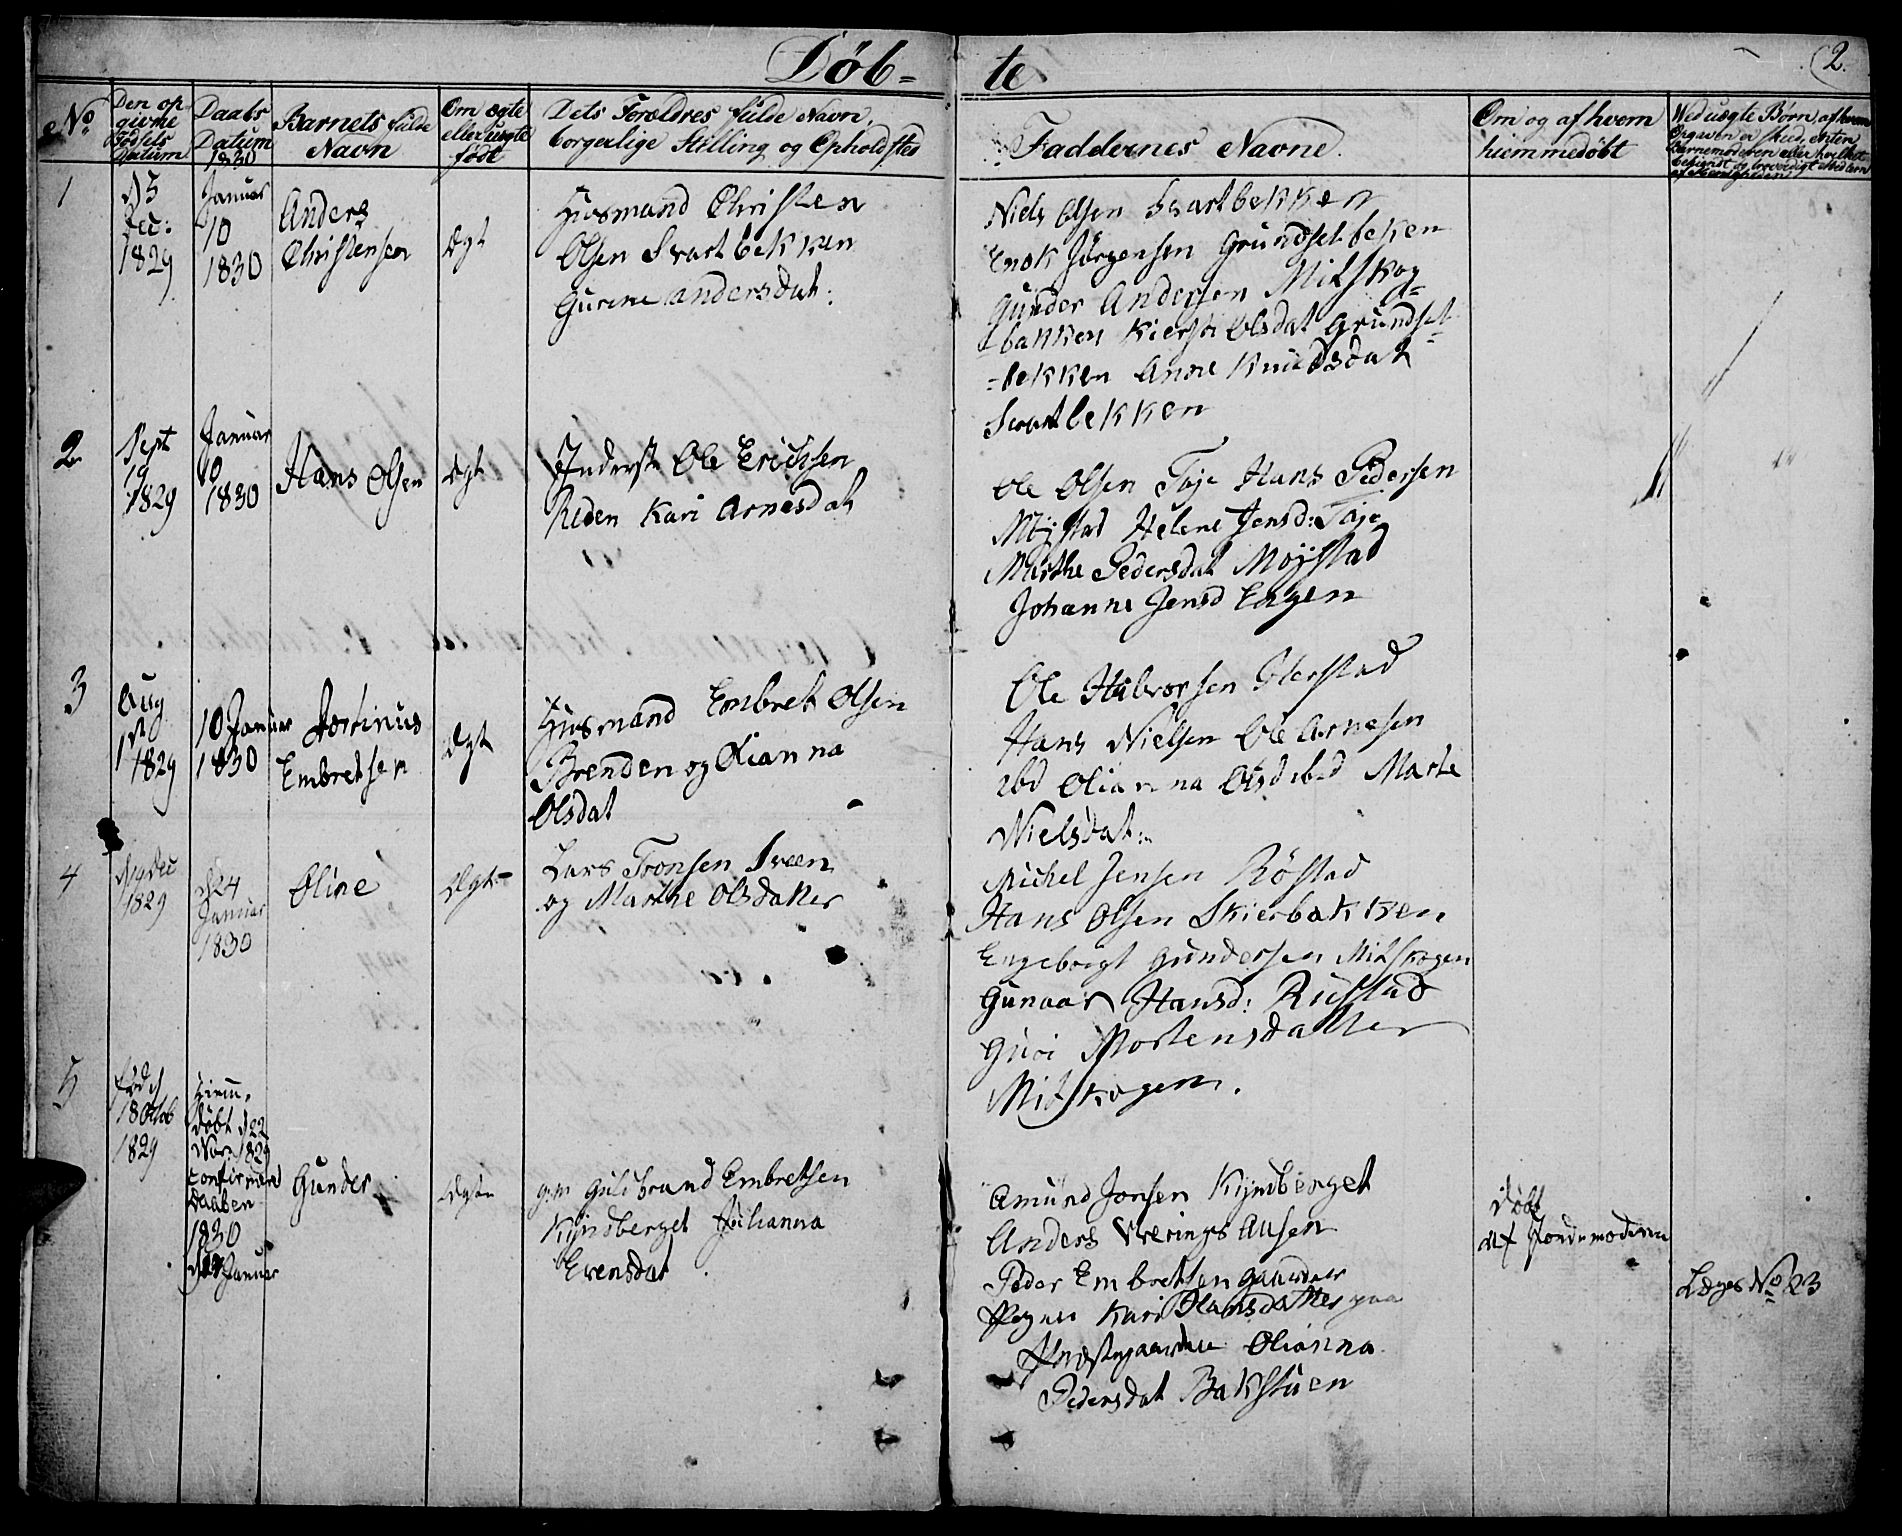 Döb-
te
2.
No
Den op-
givne
Födsels
Datum
Daabs
Datum
1830
Barnets fulde
Navn
Om ægte
eller uægte
födt
Dets Forældres fulde Navn,
borgerlige Stilling og Opholdsted
Faddernes Navne.
Om og af hvem
hiemmedøbt
Ved uægte Børn, af hvem
Opgaven er skeed, enten
Barnemoderen eller hvilket
bekiendt og troværdigt Medlem
af Menigheden
1
5
Dec:
1829
Januar
10
1830
Anders
Christensen
Ægt
Husmand Christen
Olsen Svartbekken
Gurine Andersdat:
Niels Olsen Svartbekken
Enok Jörgensen Grundsetbeken
Gunder Andersen Mitskog-
-bakken Kiersti Olsdat Grundset-
-bekken Anne Knudsdat
Svartbekken
2
Sept
19
1829
Januar
10
1830
Hans Olsen
Ægt
Inderst Ole Erichsen
Reden Kari Arnesdat
Ole Olsen Töje Hans Pedersen
Möystad Helene Jensd: Töje
Marthe Pedersdat Moÿstad
Johanne Jensd Engen
3
Aug
1829
10 Januar
1830
Embretsen
Ægt
Husmand Embret Olsen
Brenden og Olianna
Olsdat
Ole Halvorsen Gierstad
Hans Nielsen Ole Arnesen
ibd Olianna Olsd ibd Marte
Nielsdat:
4
Dec
1829
d 24
Januar
1830
Oline
Ægte
Lars Tronsen Sveen
og Marthe Olsdatter
Michel Jensen Röstad
Hans Olsen Skierbakken
Engebregt Gundersen Mitskogen
Gunaar Hansd: Rustad
Guri Mortensdatter
Mitskogen.
5
föd d
18 Octob
1829
Hiem-
döbt d 22
Nov: 1829
confirmered
Daaben
1830
d 24 Januar
Gunder
Ægte
gm Guldbrand Embretsen
Kÿndberget Julianna
Evensdat
Amund Jonsen Kÿndberget
Anders Væringsausen
Peder Embretsen
Kari Hansdatter paa
Præstegaarden Olianna
Pedersdat Bakstuen
Döbt
af Jordemoderen
Læges No 23